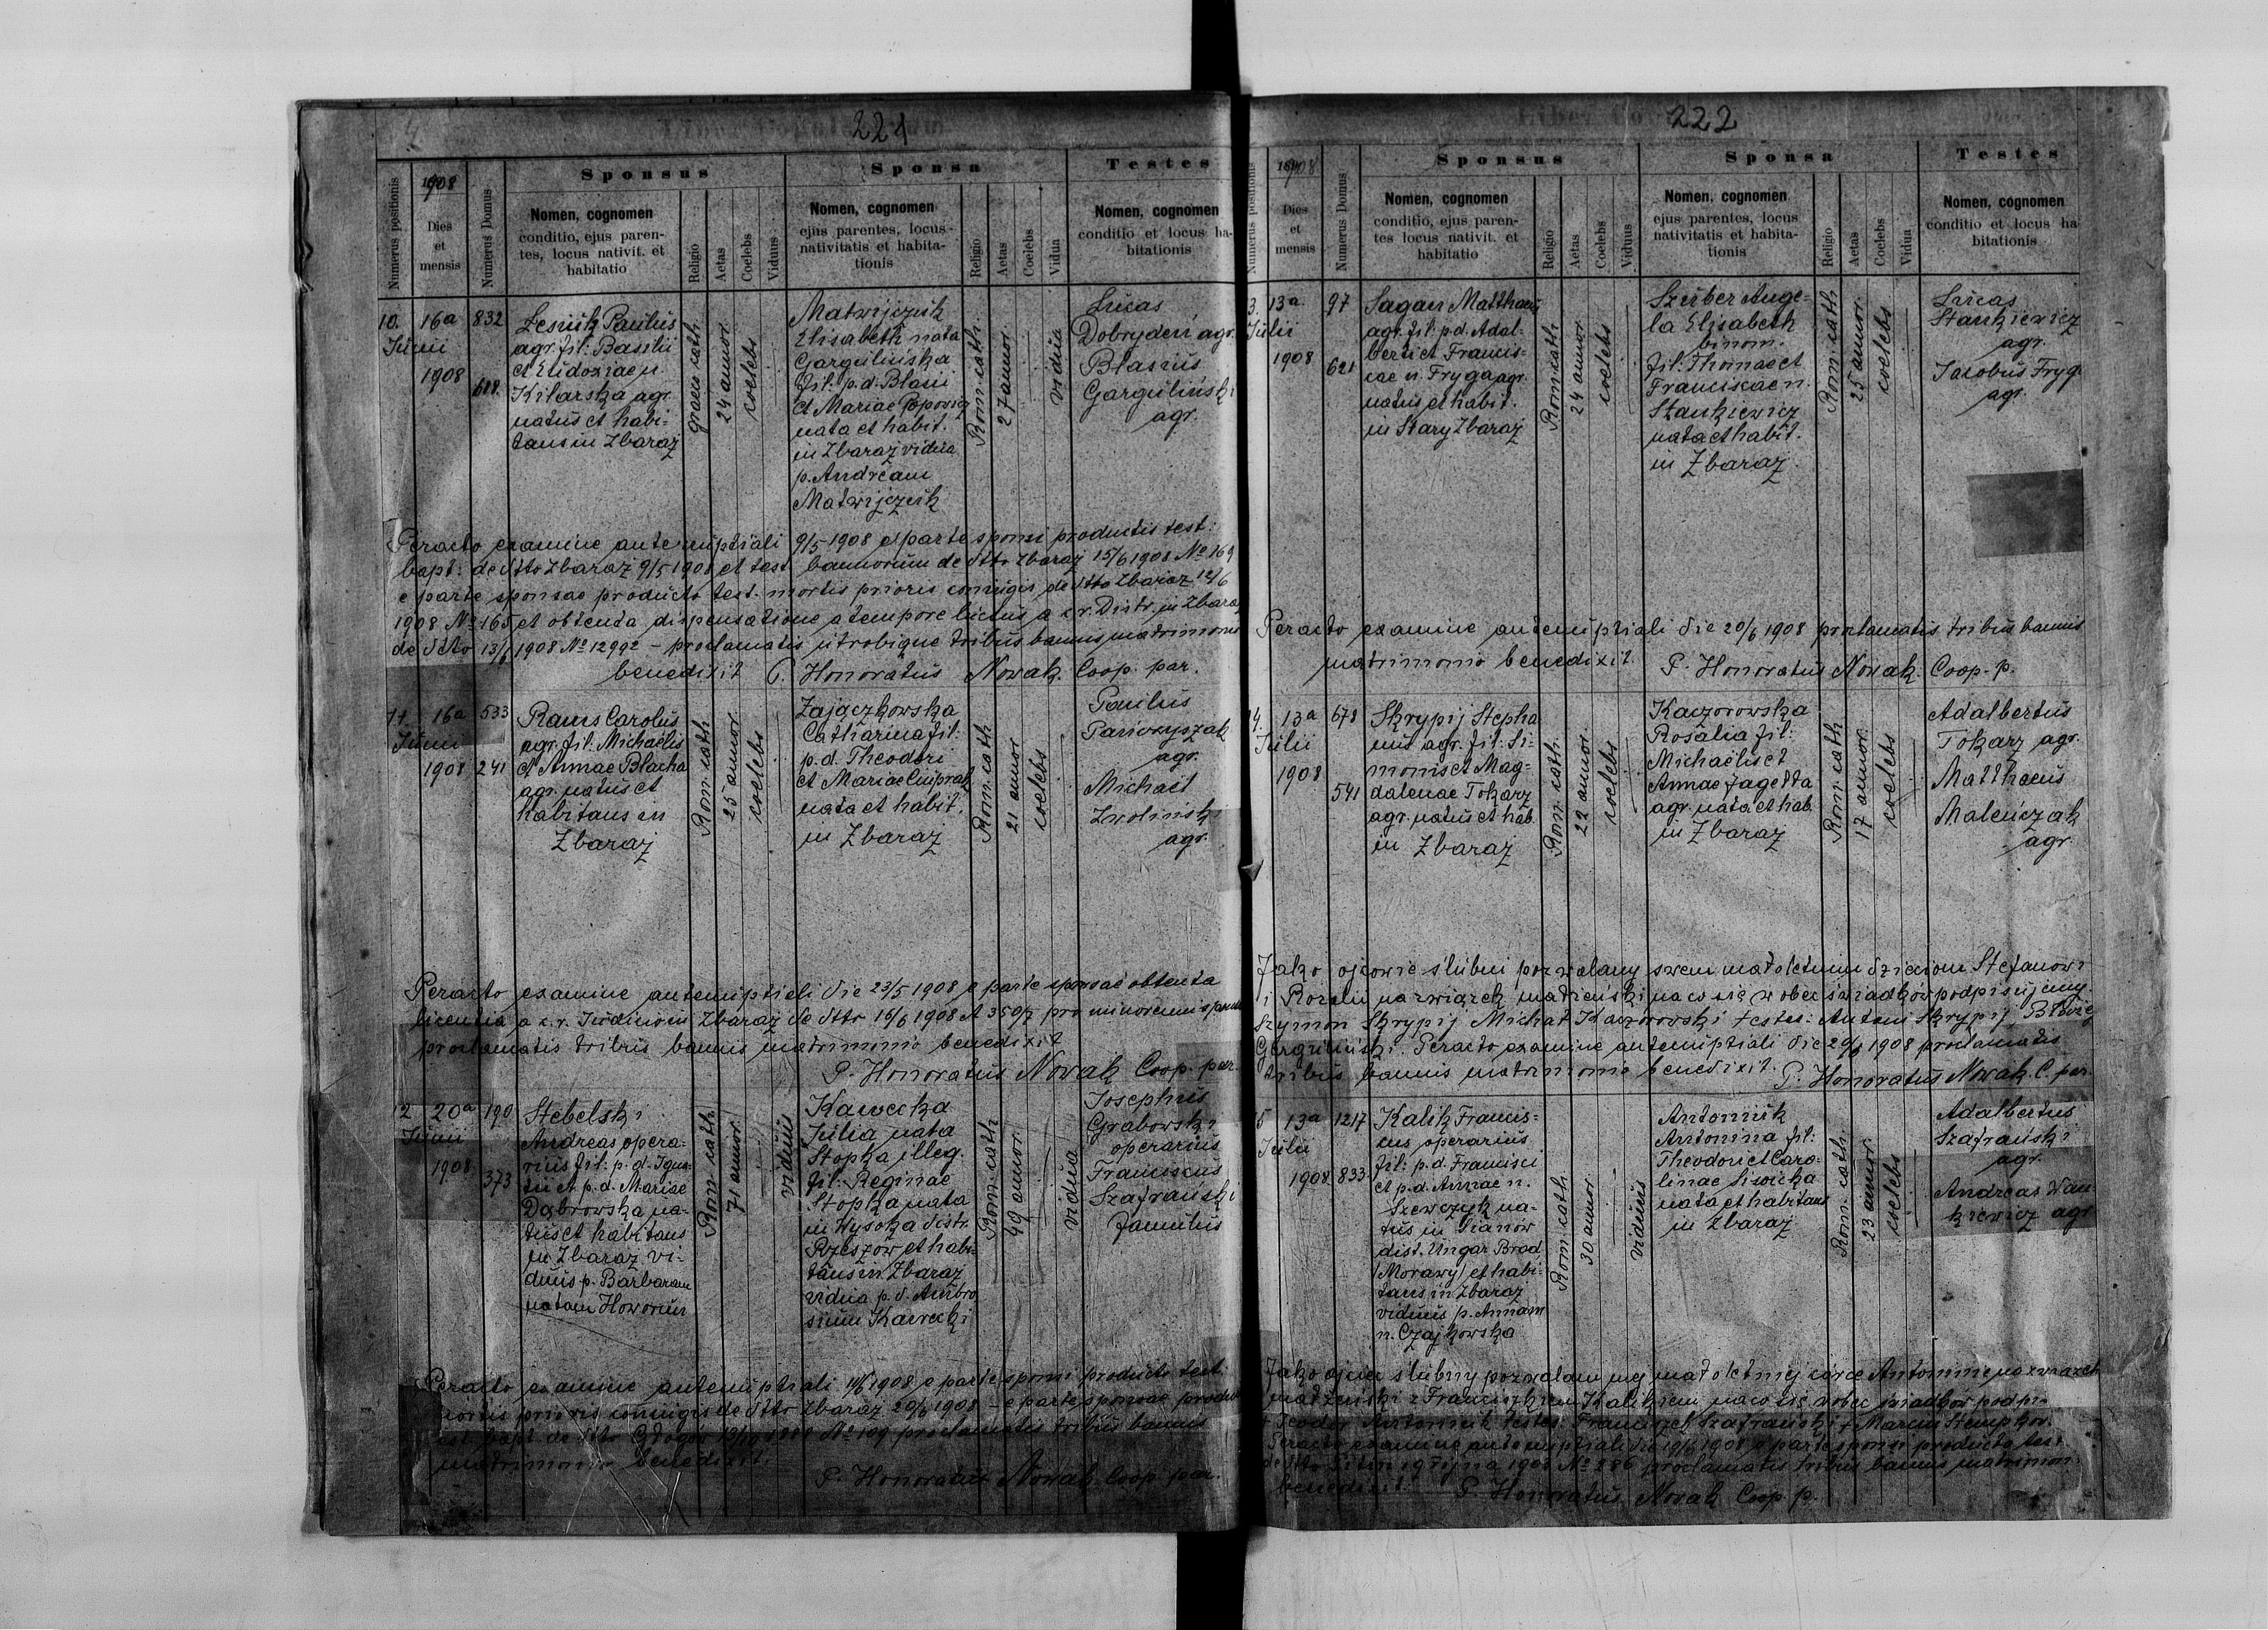 221
1908
Sponsus
Sponsa
Testes
Numerus positionis
Dies
et
mensis
Numerus Domus
Nomen, cognomen
conditio, ejus paren-
tes, locus nativit. et
habitatio
Religio
Aetas
Coelebs
Viduus
Nomen, cognomen
ejus parentes, locus
nativitatis et habita-
tionis
Religio
Aetas
Coelebs
Vidua
Nomen, cognomen
conditio et locus ha-
bitationis
10.
16a
Junii
1908
832
618.
Lesiuk Paulus
agr. fil: Basilii
et Eudoxiae n.
Kilarska agr.
natus et habi-
tans in Zbaraz
graeco cath
24 annor.
coelebs
Matwijczuk
Elisabeth nata
Gargulinska
fil: p.d. Blasii
et Mariae Popowicz
nata et habit.
in Zbaraz vidua
p. Andream
Matwijczuk
Rom. cath.
27 annor.
vidua
Lucas
Dobrydeń agr.
Blasius
Garguliński
agr.
Peracto examine antenuptiali 9/5 1908 e parte sponsi productis test:
bapt: de dtto Zbaraz 9/5 1908 et test. bannorum de dtto Zbaraz 15/6 1908 No 169
e parte sponsae producto test. mortis prioris conjugis de dtto Zbaraz 12/6
1908 No 165 et obtenta dispensatione a tempore luctus a c.r. Distr. in Zbaraz
de dtto 13/6 1908 No 12992 – proclamatis utrobique tribus bannis matrimonio
benedixit P. Honoratus Nowak. Coop. par.
11.
16a
Junii
1908
533
241
Raus Carolus
agr. fil: Michaelis
et Annae Blacha
agr. natus et
habitans in
Zbaraz
Rom. cath
25 annor.
coelebs
Zajączkowska
Catharina fil:
p.d. Theodori
et Mariae
nata et habit.
in Zbaraz
Rom. cath
21 annor
coelebs
Paulus
agr.
Michael
Zwoliński
agr.
Peracto examine antenuptiali die 23/5 1908 e parte sponsae obtenta
licentia a c.r. Judicio in Zbaraz de dtto 16/6 1908 A 350/7 pro minorenni sponsa
proclamatis tribus bannis matrimonio benedixit
P. Honoratus Nowak Coop. par.
12
20a
Junii
1908
190
373
Stebelski
Andreas opera-
rius fil: p.d. Igna-
tii et p.d. Mariae
Dąbrowska na-
tus et habitans
in Zbaraz vi-
duus p. Barbaram
natam Howorun
Rom. cath
71 annor.
viduus
Kawecka
Julia nata
Stopka illeg.
fil: Reginae
Stopka nata
in Wysoka distr.
Rzeszow et habi-
tans in Zbaraz
vidua p.d. Ambro
sium Kawecki
Rom. cath
49 annor
vidua
Josephus
Grabowski
operarius
Franciscus
Szafrański
famulus
Peracto examine antenuptiali 11/6 1908 e parte sponsi producto test.
mortis prioris conjugis de dtto Zbaraz 20/6 1908 – e parte sponsae producto
test. bapt. de dtto No 109 proclamatis tribus bannis
matrimonio benedixit.
P. Honoratus Nowak Coop. par.
222
1908
Sponsus
Sponsa
Testes
Numerus positionis
Dies
et
mensis
Numerus Domus
Nomen, cognomen
conditio, ejus paren-
tes locus nativit. et
habitatio
Religio
Aetas
Coelebs
Viduus
Nomen, cognomen
ejus parentes, locus
nativitatis et habita-
tionis
Religio
Aetas
Coelebs
Vidua
Nomen, cognomen
conditio et locus ha
bitationis
3.
13a
Julii
1908
97
621
Sagan Matthaeus
agr. fil: p.d. Adal-
berti et Francis-
cae n. Fryga agr.
natus et habit.
in Stary Zbaraz
Rom. cath
24 annor.
coelebs
Szerber Ange-
la Elisabeth
binom.
fil: Thomae et
Franciscae n.
Stankiewicz
nata et habit.
in Zbaraz.
Rom. cath
25 annor.
coelebs
Lucas
Stankiewicz
agr.
Jacobus Fryg.
agr.
Peracto examine antenuptiali die 20/6 1908 proclamatis tribus bannis
matrimonio benedixit. P. Honoratus Nowak. Coop. p.
14.
13a
Julii
1908
678
541
Skrypij Stepha
nus agr. fil: Si-
monis et Mag-
dalenae Tokarz
agr. natus et hab.
in Zbaraz
Rom. cath.
22 annor.
coelebs
Kaczorowska
Rosalia fil:
Michaelis et
Annae Jagełła
agr. nata et hab.
in Zbaraz
Rom. cath
17 annor.
coelebs
Adalbertus
Tokarz agr.
Matthaeus
Maleńczak
agr.
Jako ojcowie ślubni pozwalamy swem małoletnim dzieciom Stefanowi
i Rozalii na związek małżeński na co się w obec świadków podpisujemy.
Szymon Skrypij Michał Kaczorowski testes: Antoni Skrypij, Błażej
Garguliński. Peracto examine antenuptiali die 20/6 1908 proclamatis
tribus bannis matrimonio benedixit. P. Honoratus Nowak C. par.
15
13a
Julii
1908
1217
833
Kalik Francis-
cus operarius
fil: p.d. Francisci
et p.d. Annae n.
Szewczyk na-
tus in
dist. Ungar Brod
(Morawy) et habi-
tans in Zbaraz
viduus p. Annam
n. Czajkowska
Rom. cath
30 annor.
viduus
Antoniuk
Antonina fil:
Theodori et Caro-
linae Siwicka
nata et habitans
in Zbaraz
Rom. cath
23 annor.
coelebs
Adalbertus
Szafrański
agr.
Andreas Wan-
kiewicz agr
Jako ojciec ślubny pozwalam mej małoletniej córce Antoninie na związek
małżeński z Franciszkiem Kalikiem na co się w obec świadków podpi-
+ Teodor Antoniuk testes: Franciszek Szafrański + Marcin
Peracto examine antenuptiali die 19/6 1908 e parte sponsi producto test.
No 286 proclamatis tribus bannis matrimon.
benedixit. P. Honoratus Nowak Coop. p.